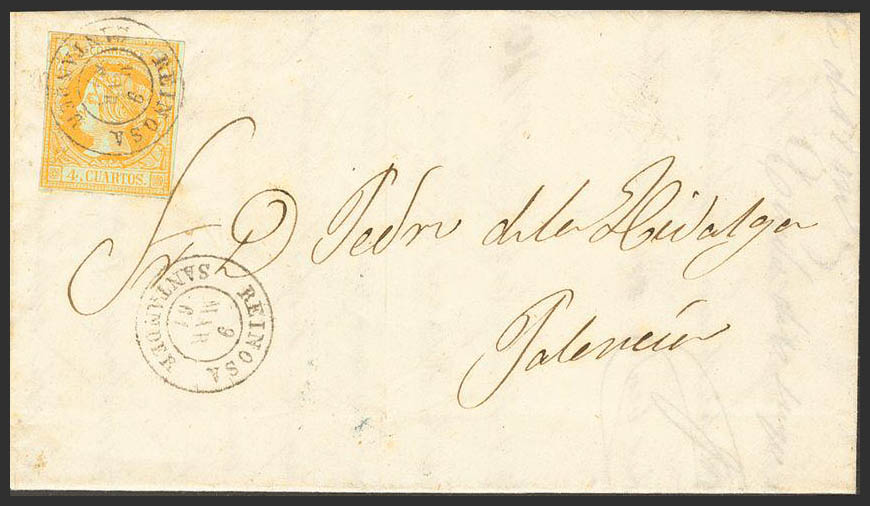 REINOSA SANTANDER
9
4. CUARTOS.
Sr. D. Pedro de la Hidalga
Palencia
REINOSA SANTANDER
9
MAR
61